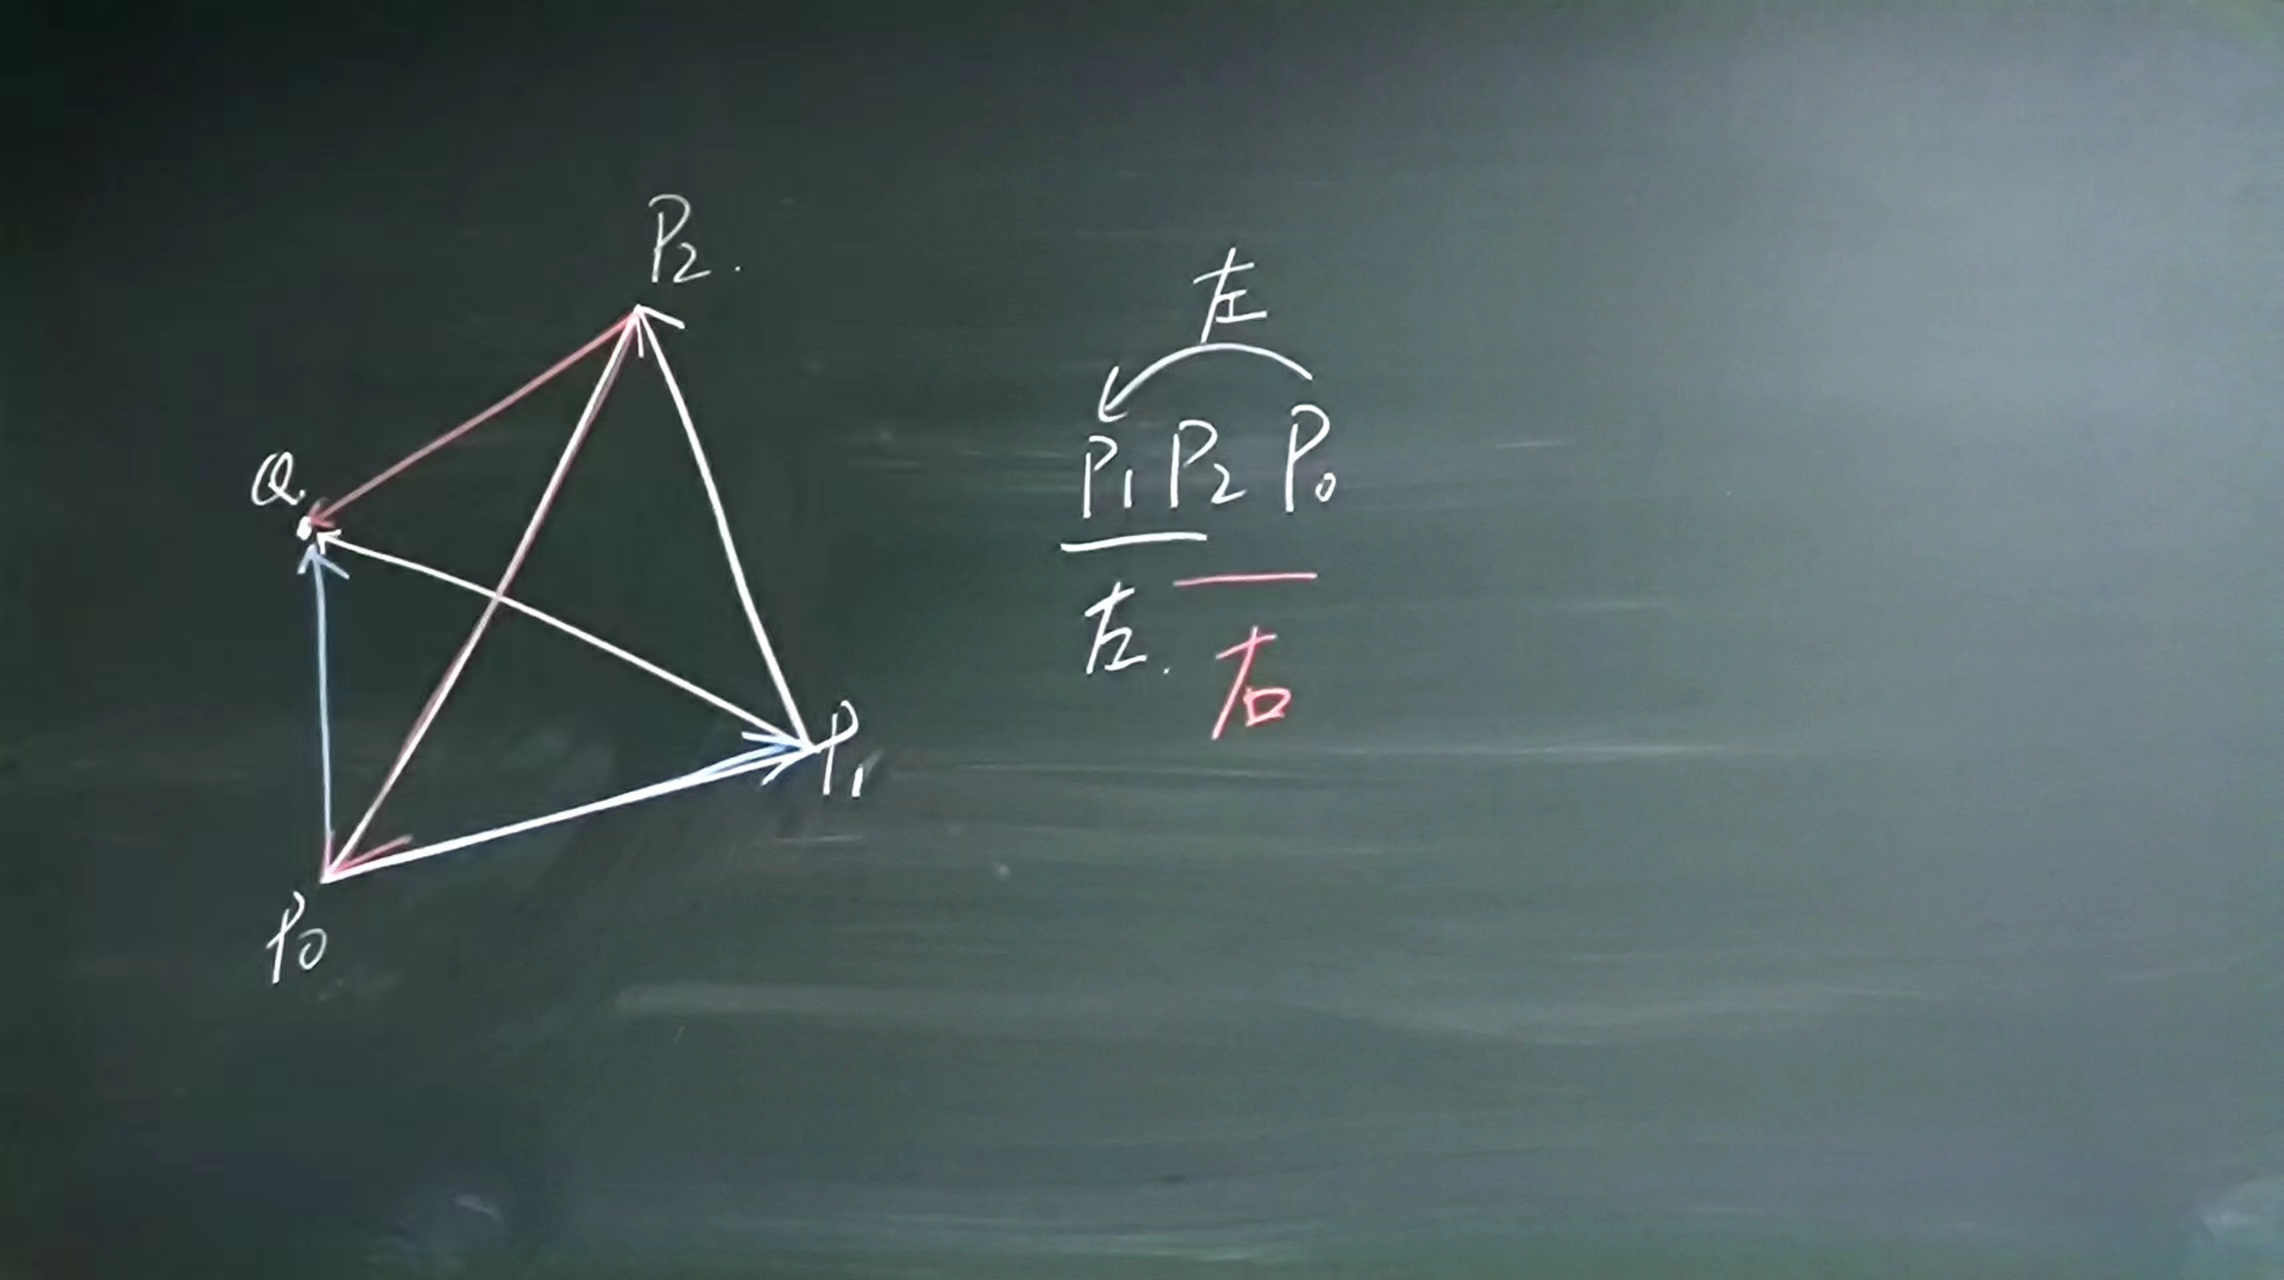 P2.
Q.
P1
P0
左
P1 P2 P0
左.
右